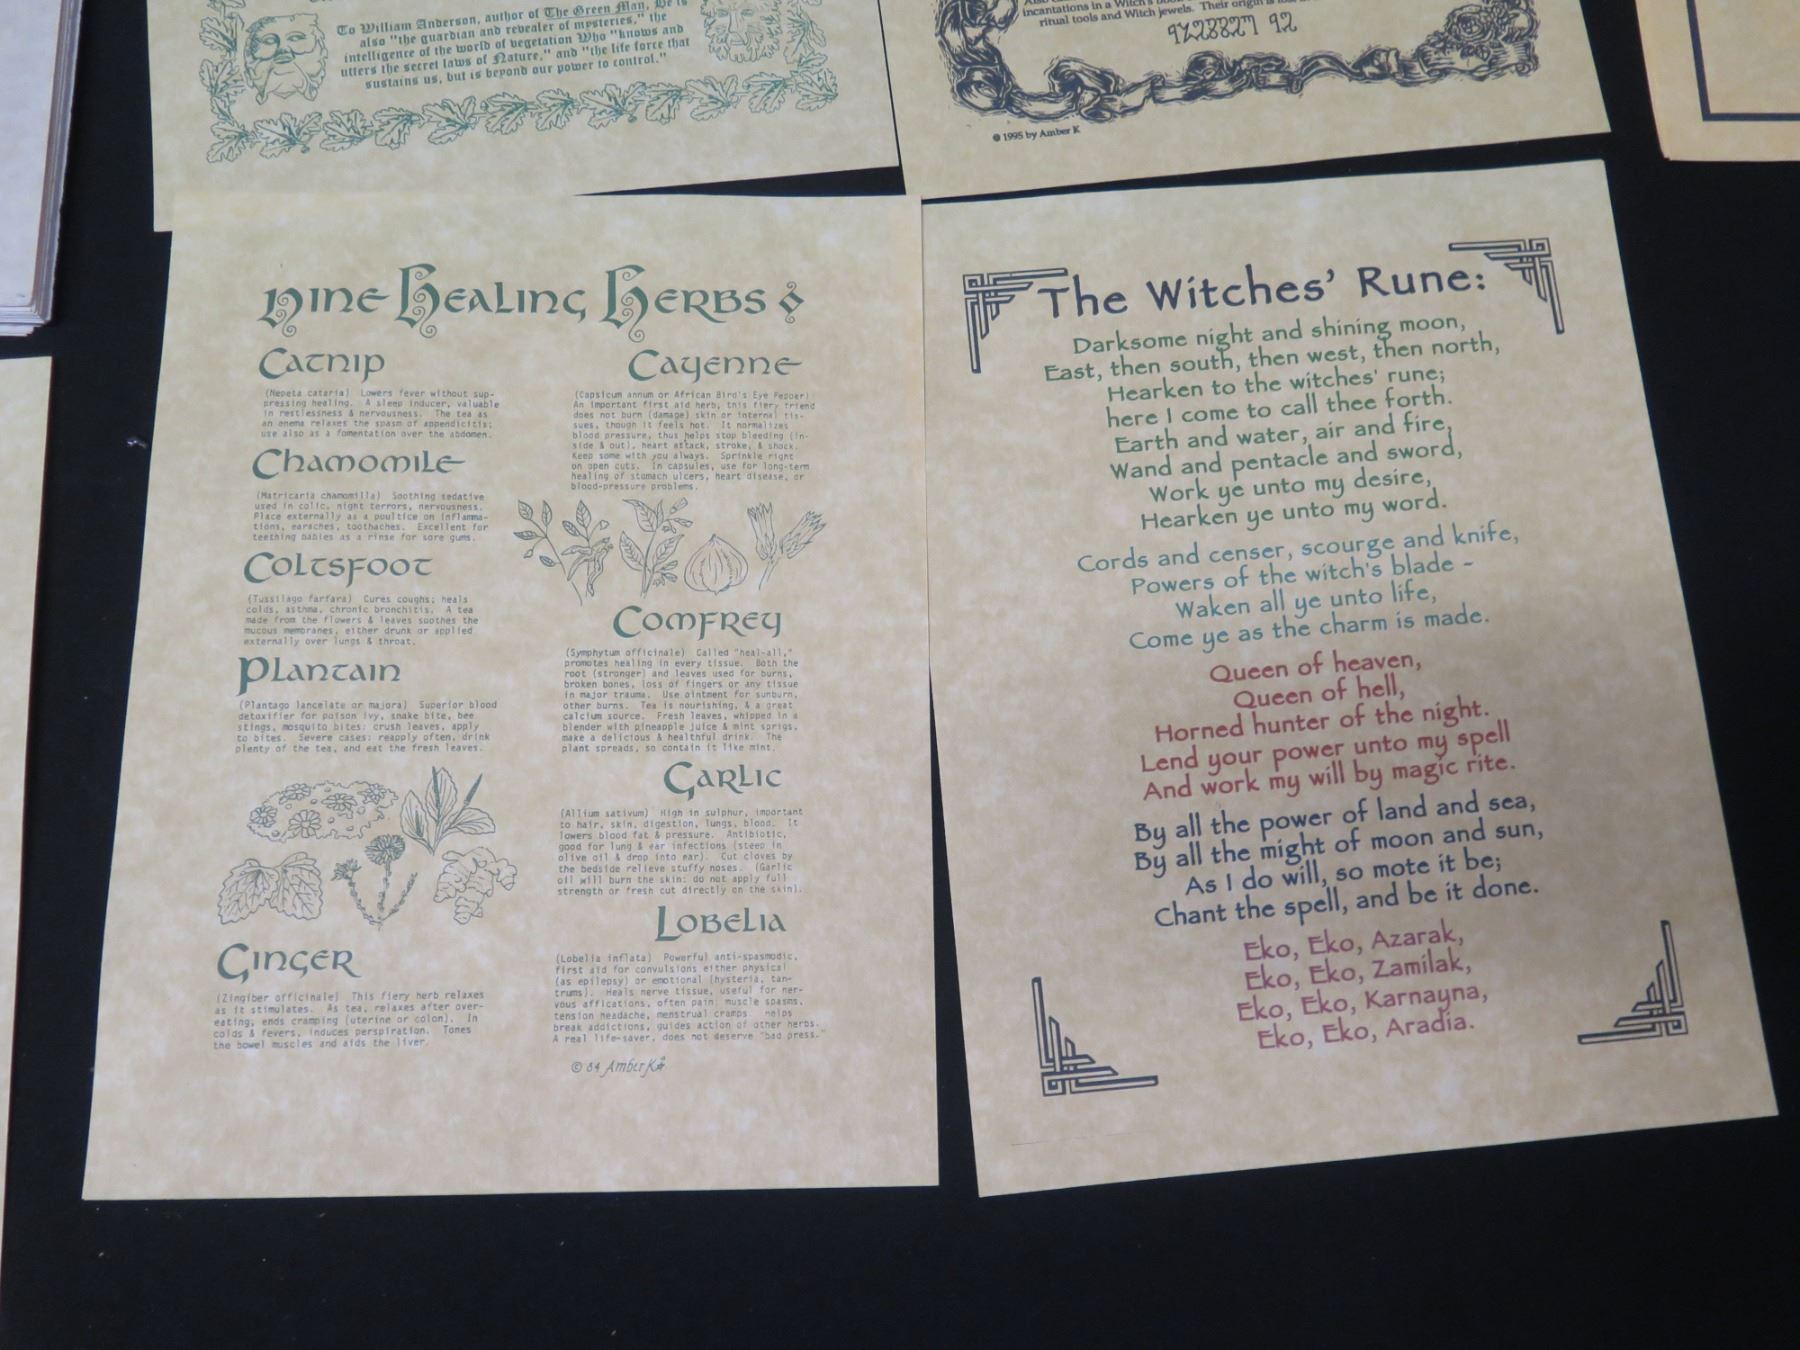 To William Anderson, author of The Green Man, He is
also "the guardian and revealer of mysteries," the
intelligence of the world of vegetation Who "knows and
utters the secret laws of Nature," and "the life force that
sustains us, but is beyond our power to control."
incantations in a Witch's
ritual tools and Witch jewels. Their origin is
© 1995 by Amber K
Nine Healing Herbs
Catnip
(Nepeta cataria) Lowers fever without sup-
pressing healing. A sleep inducer, valuable
in restlessness & nervousness. The tea as
an enema relaxes the spasm of appendicitis;
use also as a fomentation over the abdomen.
Chamomile
(Matricaria chamomilla) Soothing sedative
used in colic, night terrors, nervousness.
Place externally as a poultice on inflamma-
tions, earaches, toothaches. Excellent for
teething babies as a rinse for sore gums.
Coltsfoot
(Tussilago farfara) Cures coughs; heals
colds, asthma, chronic bronchitis. A tea
made from the flowers & leaves soothes the
mucous membranes, either drunk or applied
externally over lungs & throat.
Plantain
(Plantago lancelate or majora) Superior blood
detoxifier for poison ivy, snake bite, bee
stings, mosquito bites: crush leaves, apply
to bites. Severe cases: reapply often, drink
plenty of the tea, and eat the fresh leaves.
Ginger
(Zingiber officinale) This fiery herb relaxes
as it stimulates. As tea, relaxes after over-
eating; ends cramping (uterine or colon). In
colds & fevers, induces perspiration. Tones
the bowel muscles and aids the liver.
Cayenne
(Capsicum annum or African Bird's Eye Pepper)
An important first aid herb, this fiery friend
does not burn (damage) skin or internal tis-
sues, though it feels hot. It normalizes
blood pressure, thus helps stop bleeding (in-
side & out), heart attack, stroke, & shock.
Keep some with you always. Sprinkle right
on open cuts. In capsules, use for long-term
healing of stomach ulcers, heart disease, or
blood-pressure problems.
Comfrey
(Symphytum officinale) Called "heal-all,"
promotes healing in every tissue. Both the
root (stronger) and leaves used for burns,
broken bones, loss of fingers or any tissue
in major trauma. Use ointment for sunburn,
other burns. Tea is nourishing, & a great
calcium source. Fresh leaves, whipped in a
blender with pineapple juice & mint sprigs,
make a delicious & healthful drink. The
plant spreads, so contain it like mint.
Garlic
(Allium sativum) High in sulphur, important
to hair, skin, digestion, lungs, blood. It
lowers blood fat & pressure. Antibiotic,
good for lung & ear infections (steep in
olive oil & drop into ear). Cut cloves by
the bedside relieve stuffy noses. (Garlic
oil will burn the skin: do not apply full
strength or fresh cut directly on the skin).
Lobelia
(Lobelia inflata) Powerful anti-spasmodic,
first aid for convulsions either physical
(as epilepsy) or emotional (hysteria, tan-
trums). Heals nerve tissue, useful for ner-
vous afflications, often pain; muscle spasms,
tension headache, menstrual cramps helps
break addictions, guides action of other herbs.
A real life-saver, does not deserve "bad press."
© 84 Amber K
The Witches' Rune:
Darksome night and shining moon,
East, then south, then west, then north,
Hearken to the witches' rune;
here I come to call thee forth.
Earth and water, air and fire,
Wand and pentacle and sword,
Work ye unto my desire,
Hearken ye unto my word.
Cords and censer, scourge and knife,
Powers of the witch's blade -
Waken all ye unto life,
Come ye as the charm is made.
Queen of heaven,
Queen of hell,
Horned hunter of the night.
Lend your power unto my spell
And work my will by magic rite.
By all the power of land and sea,
By all the might of moon and sun,
As I do will, so mote it be;
Chant the spell, and be it done.
Eko, Eko, Azarak,
Eko, Eko, Zamilak,
Eko, Eko, Karnayna,
Eko, Eko, Aradia.